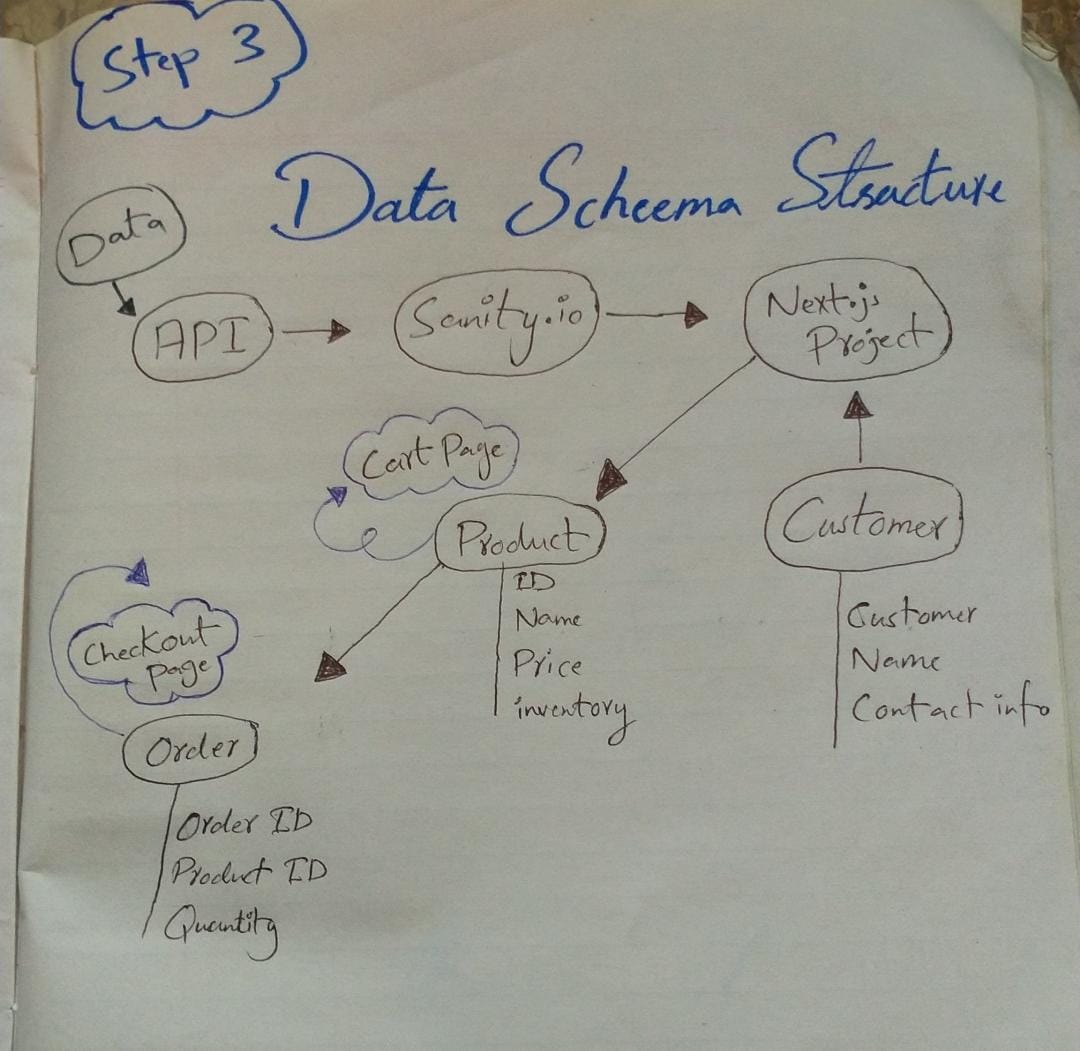 Step 3
Data Scheema Stracture
Data
API
Sanity.io
Next.js
Project
Cart Page
Product
ID
Name
Price
inventory
Customer
Customer
Name
Contact info
Checkout
page
Order
Order ID
Product ID
Quantity